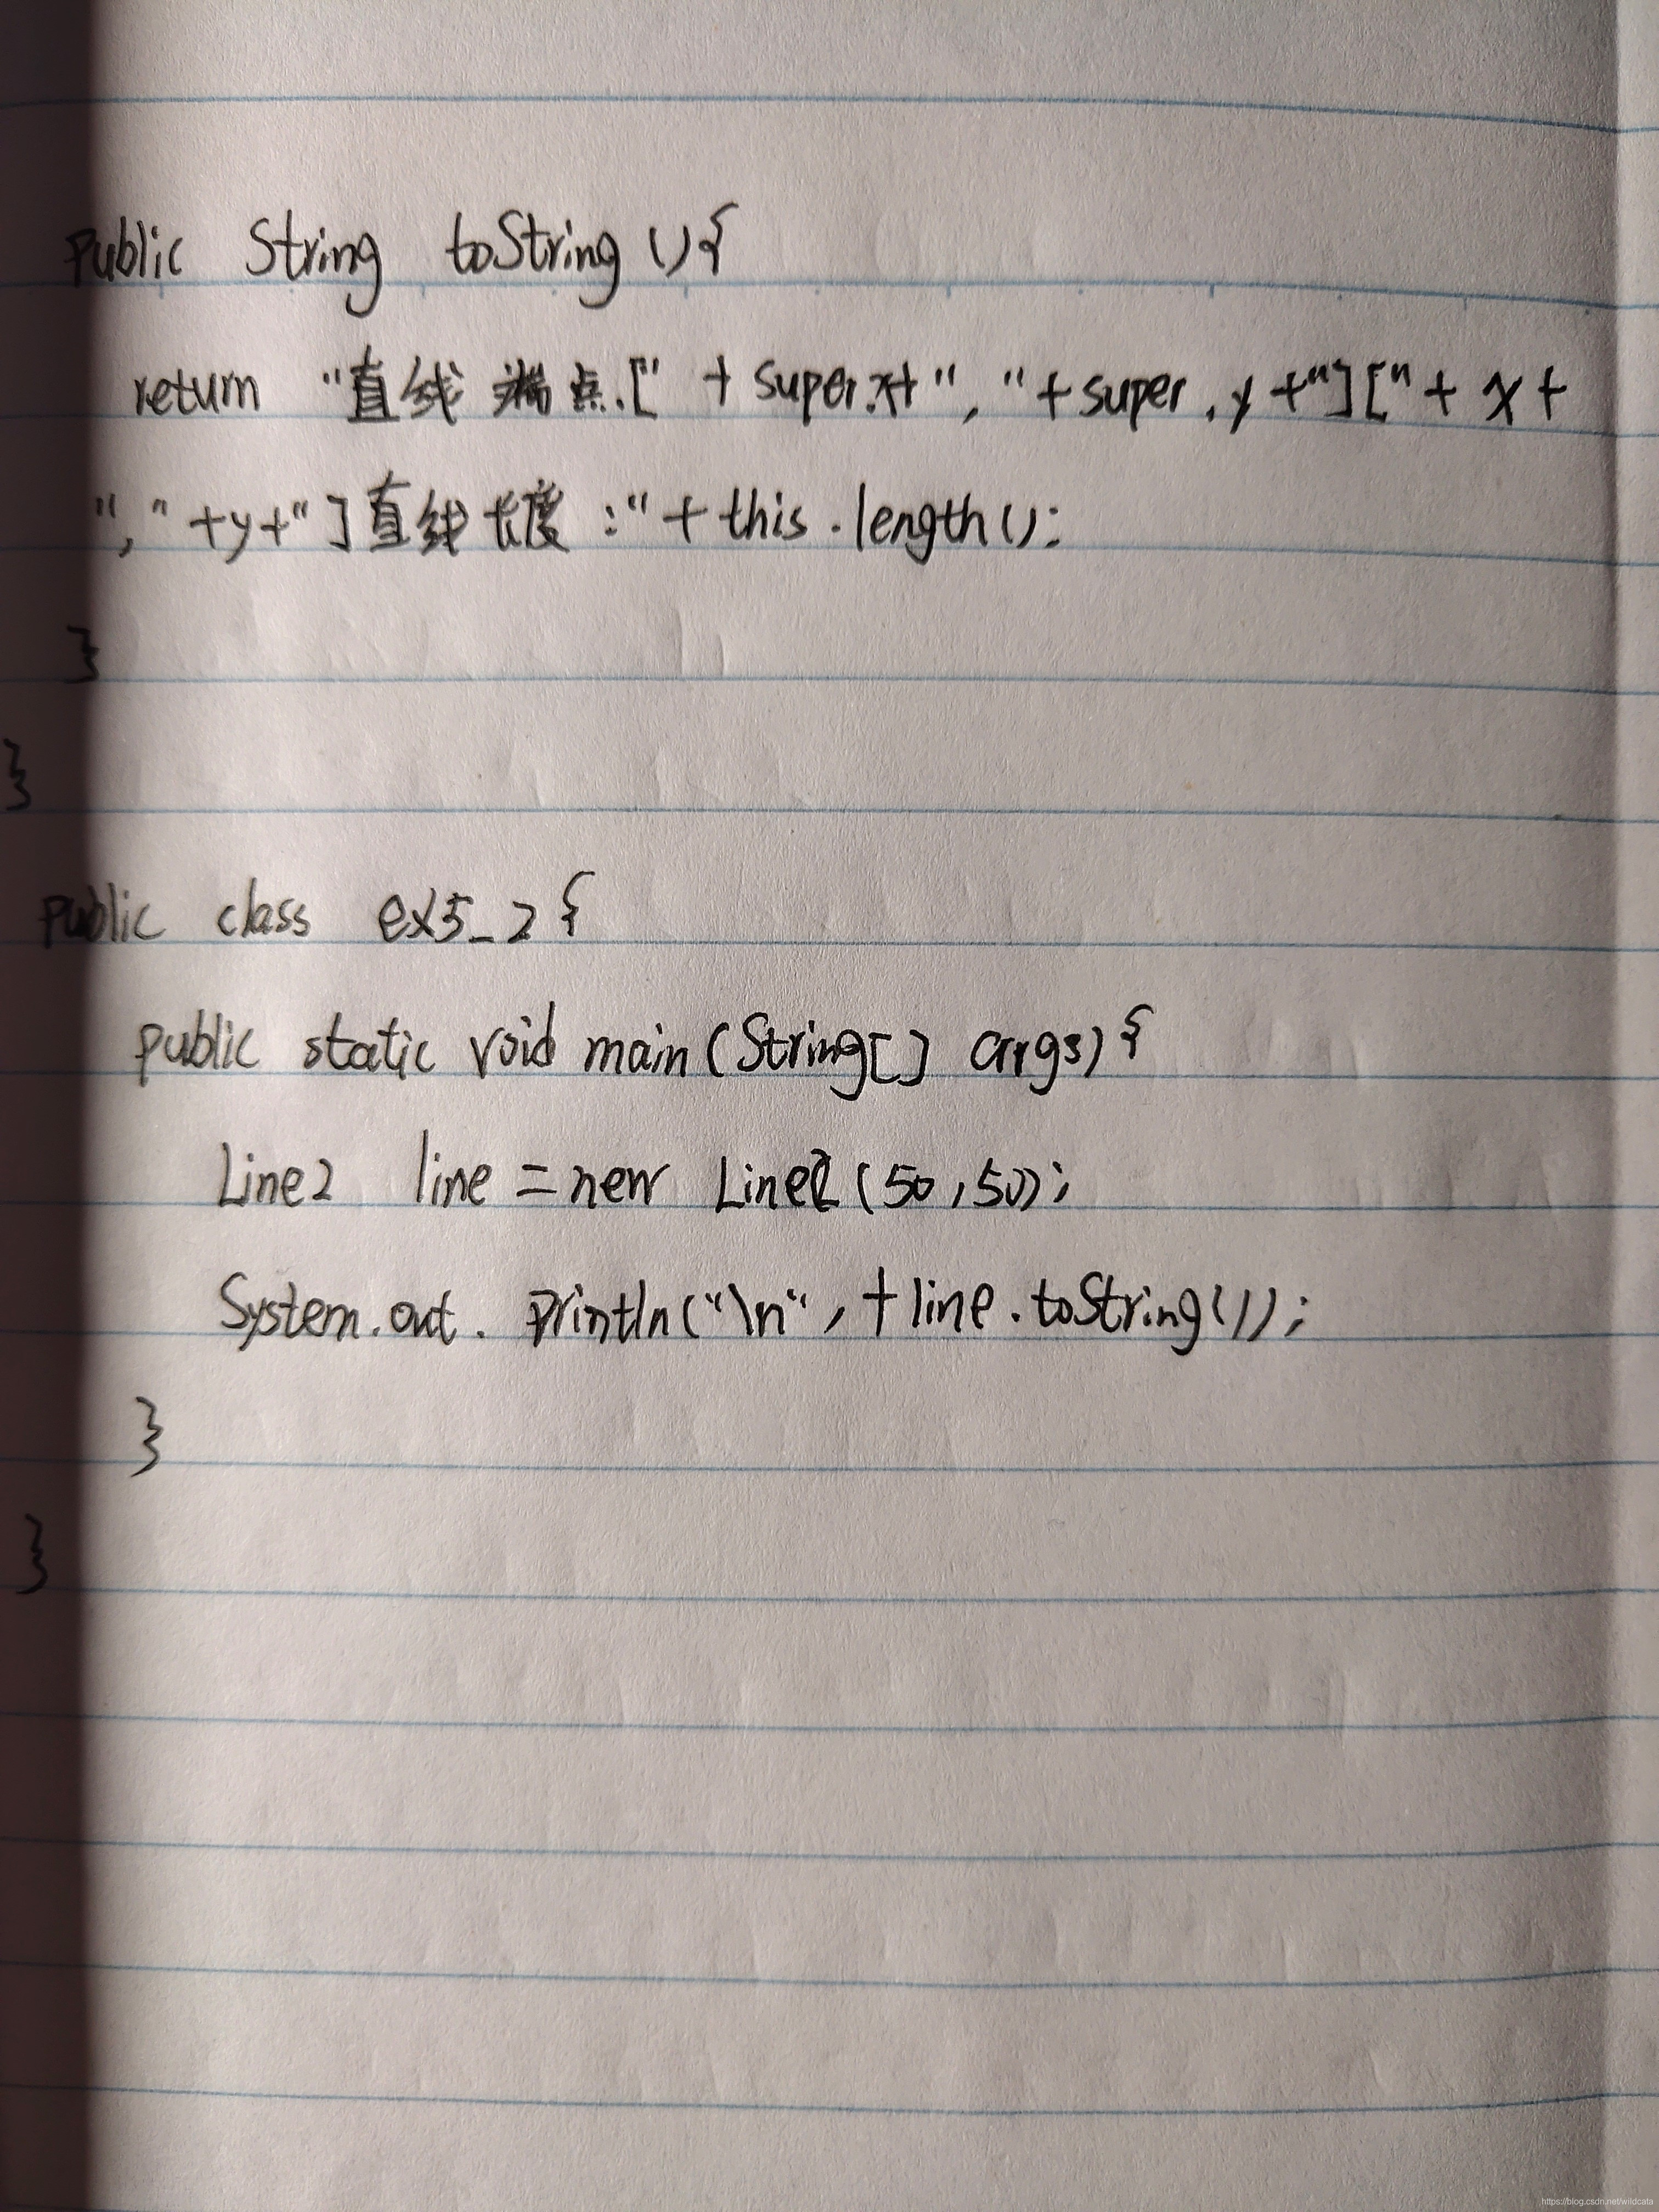 public String toString(){
return "直线端点.[" + super.x+ ", "+super.y+"]["+ x+
"," +y+"]直线长度:"+this.length():
}
}
public class ex5_2{
public static void main(String[] args){
Line2 line = new Line2(50,50);
System.out.println("\n", +line.toString());
}
}
https://blog.csdn.net/wildcata